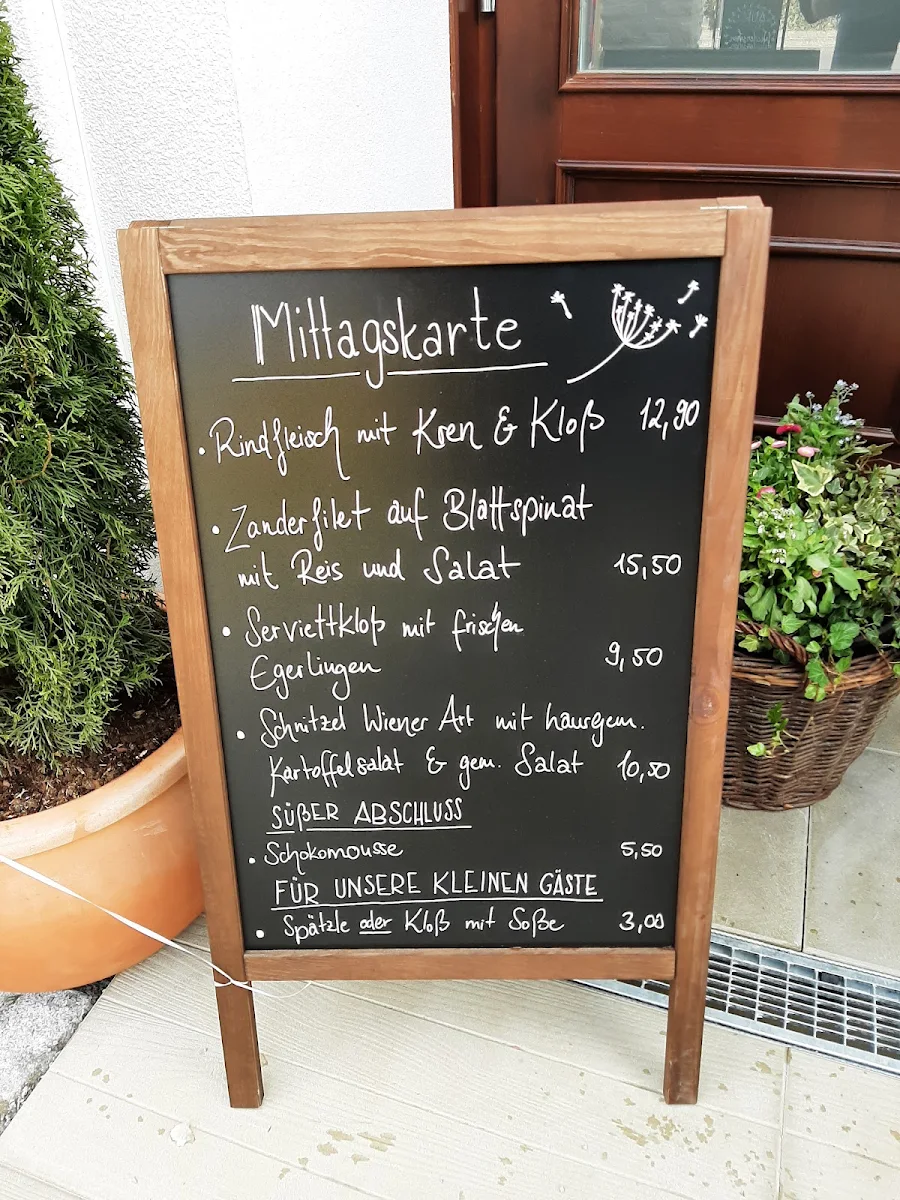 Mittagskarte
• Rindfleisch mit Kren & Kloß 12,90
• Zanderfilet auf Blattspinat
mit Reis und Salat 15,50
• Serviettkloß mit frischen
Egerlingen 9,50
• Schnitzel Wiener Art mit hausgem.
Kartoffelsalat & gem. Salat 10,50
SÜßER ABSCHLUSS
• Schokomousse 5,50
FÜR UNSERE KLEINEN GÄSTE
• Spätzle oder Kloß mit Soße 3,00